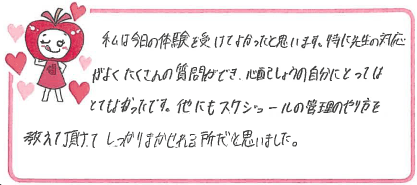 私は今日の体験を受けてよかったと思います。特に先生の対応
がよくたくさんの質問ができ、心配しょうの自分にとっては
とてもよかったです。他にもスケジュールの管理のやり方を
教えて頂きてしっかりまかせれる所だと思いました。